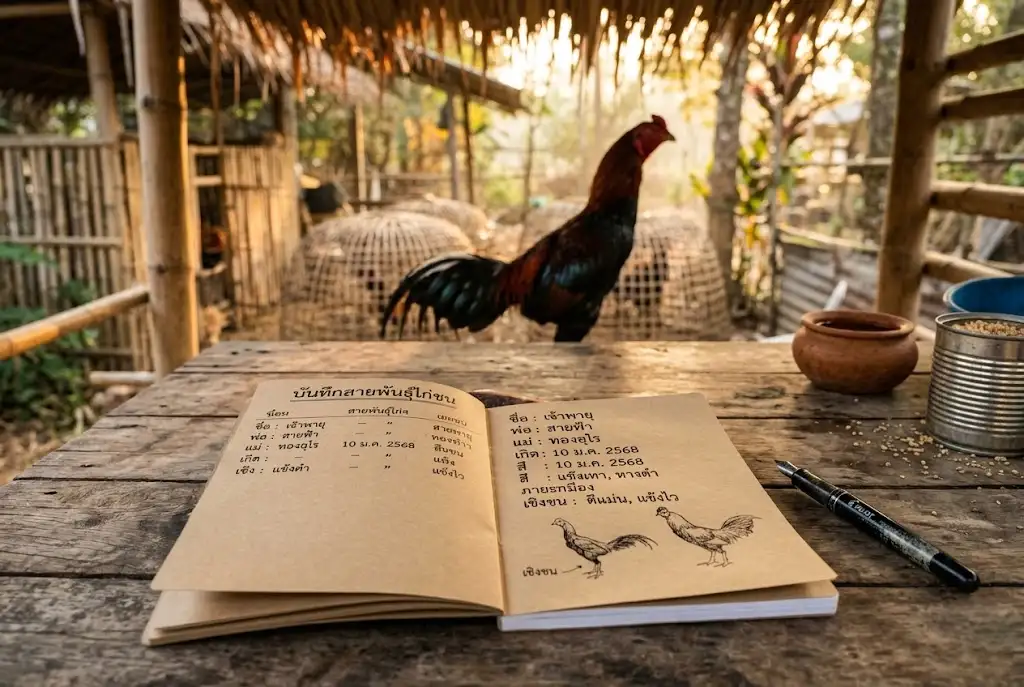 บันทึกสายพันธุ์ไก่ชน
สายพันธุ์ไก่ง
ชื่อ : เจ้าพายุ — " สายพายุ
พ่อ : สายฟ้า — "
แม่ : ทองอุไร 10 ม.ค. 2568
เกิด : — "
เชิง : แข้งดำ — " แข้งไว
ชื่อ : เจ้าพายุ
พ่อ : สายฟ้า
แม่ : ทองอุไร
เกิด : 10 ม.ค. 2568
สี : 10 ม.ค. 2568
สี : แข้งเทา, หางดำ
เชิงชน : ตีแม่น, แข้งไว
เชิงชน